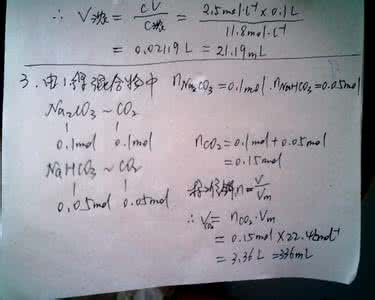 ∴ V浓 = cV/c浓 = 2.5mol·L⁻¹×0.1L/11.8mol·L⁻¹
= 0.02119L = 21.19mL
3. 由1得混合物中 nNa₂CO₃=0.1mol. nNaHCO₃=0.05mol
Na₂CO₃ ~ CO₂
0.1mol 0.1mol
nCO₂ = 0.1mol + 0.05mol
= 0.15mol
NaHCO₃ ~ CO₂
0.05mol 0.05mol
n=V/Vm
∴ VCO₂ = nCO₂·Vm
= 0.15mol × 22.4
= 3.36L = 336mL